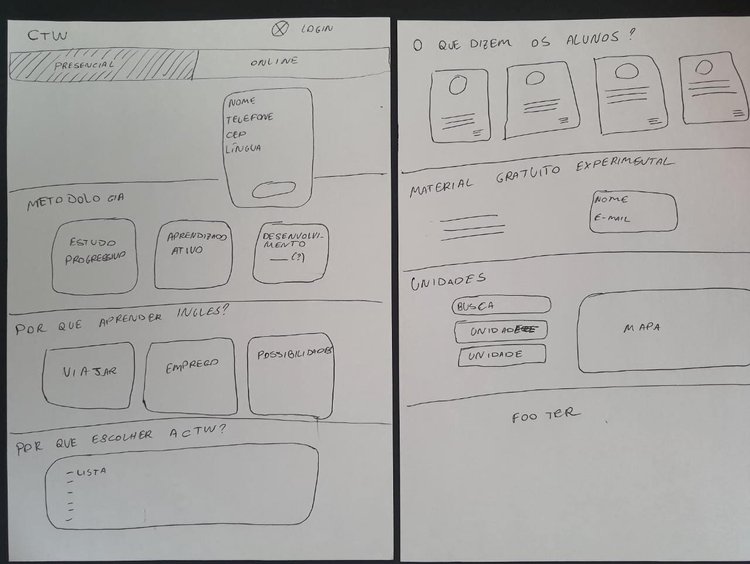 CTW
LOGIN
PRESENCIAL
ONLINE
NOME
TELEFONE
CEP
LÍNGUA
METODOLOGIA
ESTUDO
PROGRESSIVO
APRENDIZADO
ATIVO
DESENVOLVI-
MENTO
___ (?)
POR QUE APRENDER INGLES?
VIAJAR
EMPREGO
POSSIBILIDADES
POR QUE ESCOLHER A CTW?
- LISTA
-
-
-
-
-
O QUE DIZEM OS ALUNOS?
MATERIAL GRATUITO EXPERIMENTAL
NOME
E-MAIL
UNIDADES
BUSCA
UNIDADE
UNIDADE
MAPA
FOOTER